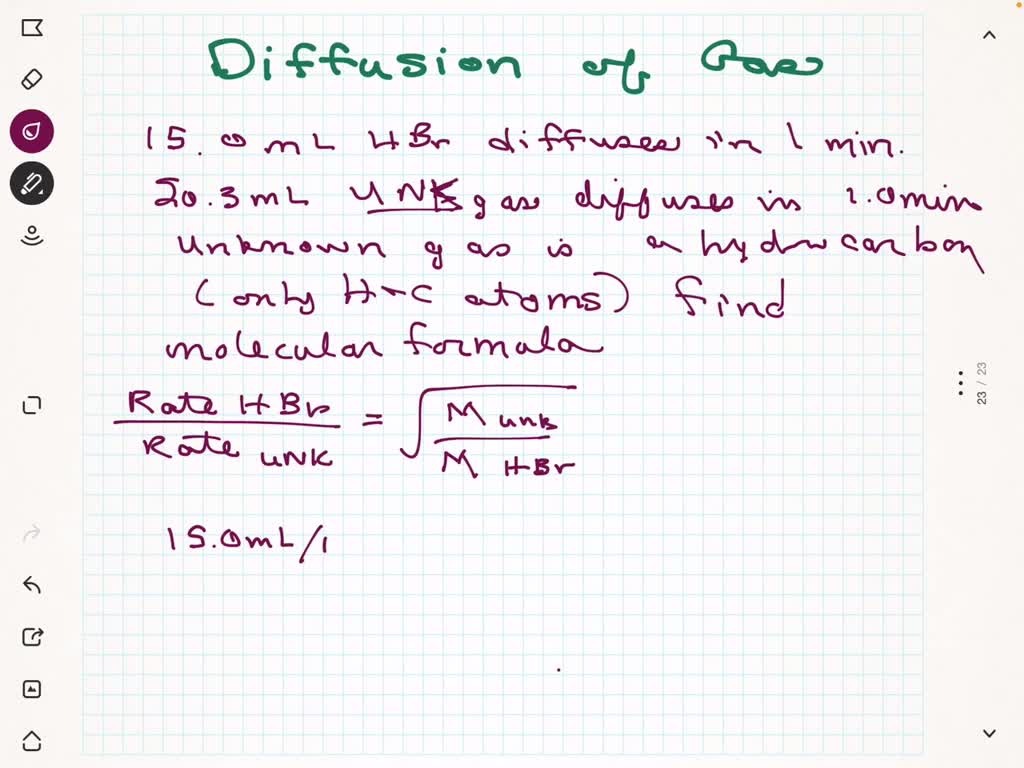 Diffusion of Gas
15.0 mL HBr diffuses in 1 min.
20.3 mL UNK gas diffuses in 1.0 min
unknown gas is a hydrocarbon
(only H + C atoms) find
molecular formala
Rate HBr / Rate UNK = √ M unk / M HBr
15.0 mL/1
23 / 23